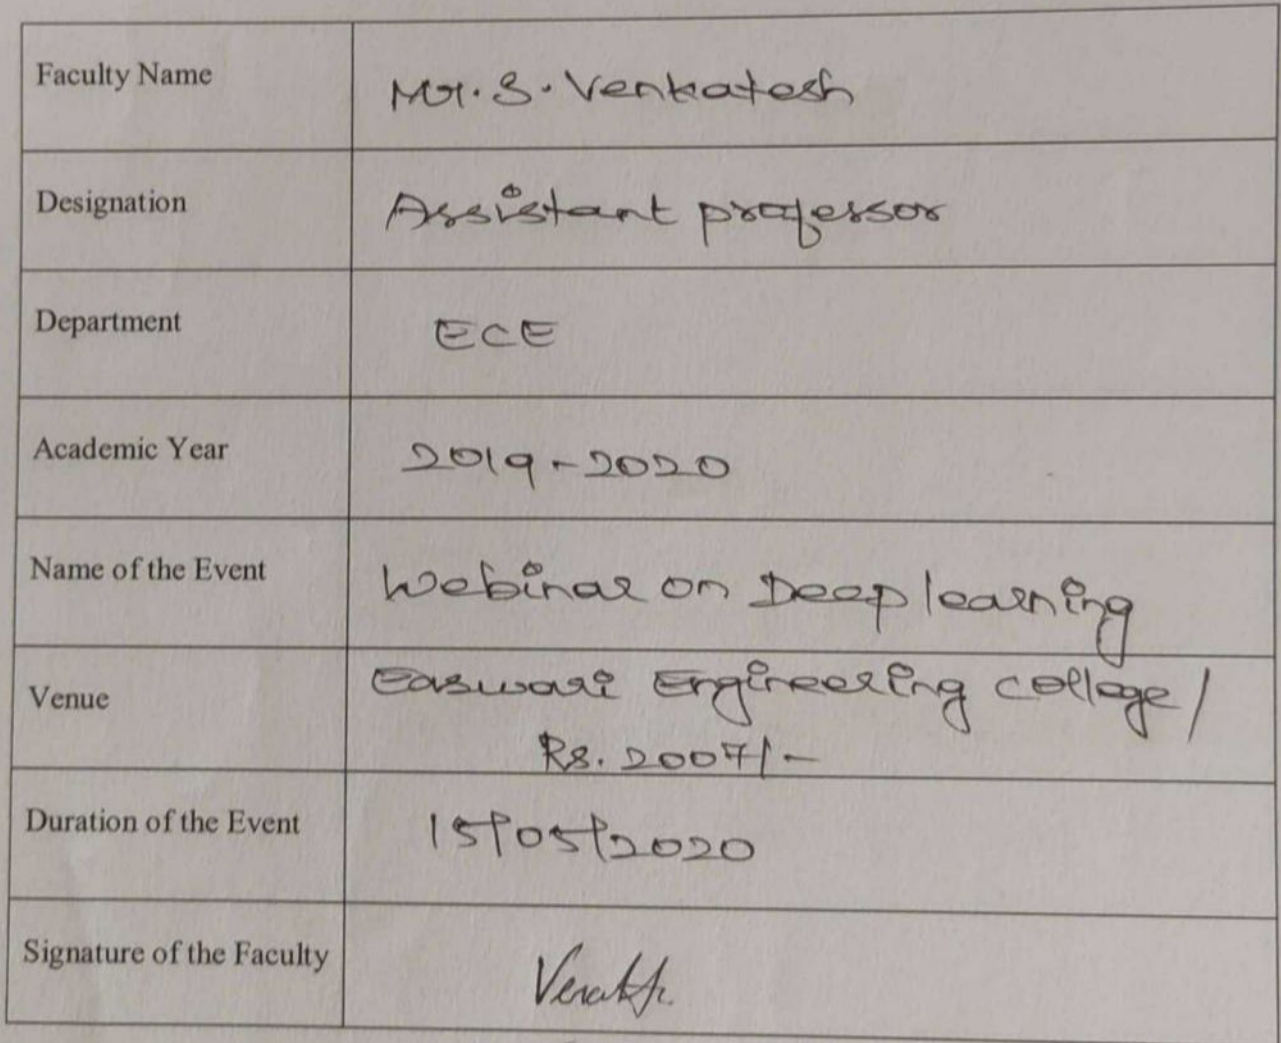 Faculty Name
Mr. S. Venkatesh
Designation
Assistant professor
Department
ECE
Academic Year
2019-2020
Name of the Event
Webinar on Deep learning
Venue
Easwari Engineering college /
Rs. 2007/-
Duration of the Event
15/05/2020
Signature of the Faculty